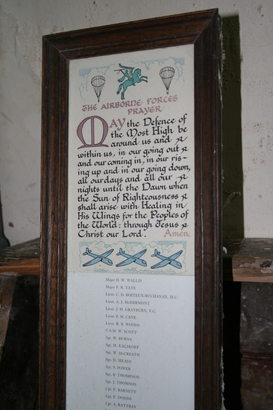 THE AIRBORNE FORCES
PRAYER
May the Defence of
the Most High be
around us and
within us, in our going out
and our coming in, in our ris-
ing up and in our going down,
all our days and all our
nights until the Dawn when
the Sun of Righteousness
shall arise with Healing in
His Wings for the Peoples of
the World: through Jesus
Christ our Lord. Amen.
Major D. W. WALLIS
Major F. R. TATE
Lieut.
Lieut. A. J.
Lieut. J. H.
Lieut. P. H. CANE
Lieut. R. B. WOODS
C.S.M. W.
Sgt. W. BURNS
Sgt. H.
Sgt. W. McCREATH
Sgt.
Sgt. A. POWER
Sgt. R. THOMPSON
Sgt. J. THOMSON
Cpl. P. BARNETT
Cpl.
Cpl. A.